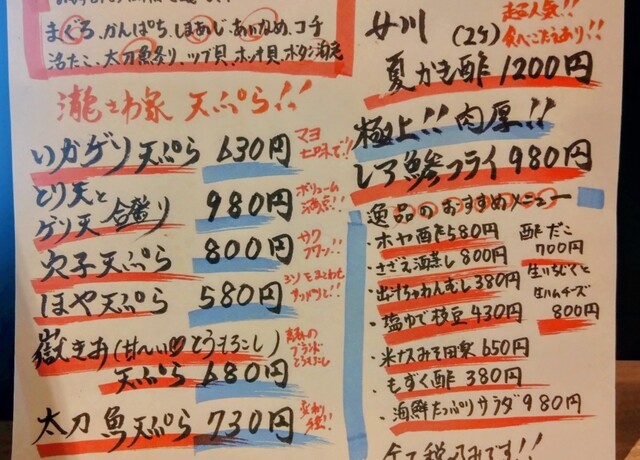 まぐろ、かんぱち、しまあじ、あいなめ、コチ
活たこ、太刀魚炙り、ツブ貝、ホッキ貝、ボタン海老
瀧さわ家 天ぷら!!
いかゲソ天ぷら 630円 マヨ七味で!!
とり天と
ゲソ天 合盛り 980円 ボリューム満点!!
穴子天ぷら 800円 サクフワッ!!
ほや天ぷら 580円
嶽きみ(甘〜いとうもろこし)
天ぷら 680円
太刀魚天ぷら 730円
女川 (2ケ) 超人気!!
食べごたえあり!!
夏かき酢 1200円
極上!! 肉厚!!
しろ鯵フライ 980円
逸品のおすすめメニュー
・ホヤ酢 580円
・さざえ酒蒸し 800円
・出汁ちゃわんむし 380円
・塩ゆで枝豆 430円
・米ナスみそ田楽 650円
・もずく酢 380円
・海鮮たっぷりサラダ 980円
酢だこ
700円
生いちじくと
生ハムチーズ
800円
全て税込みです!!